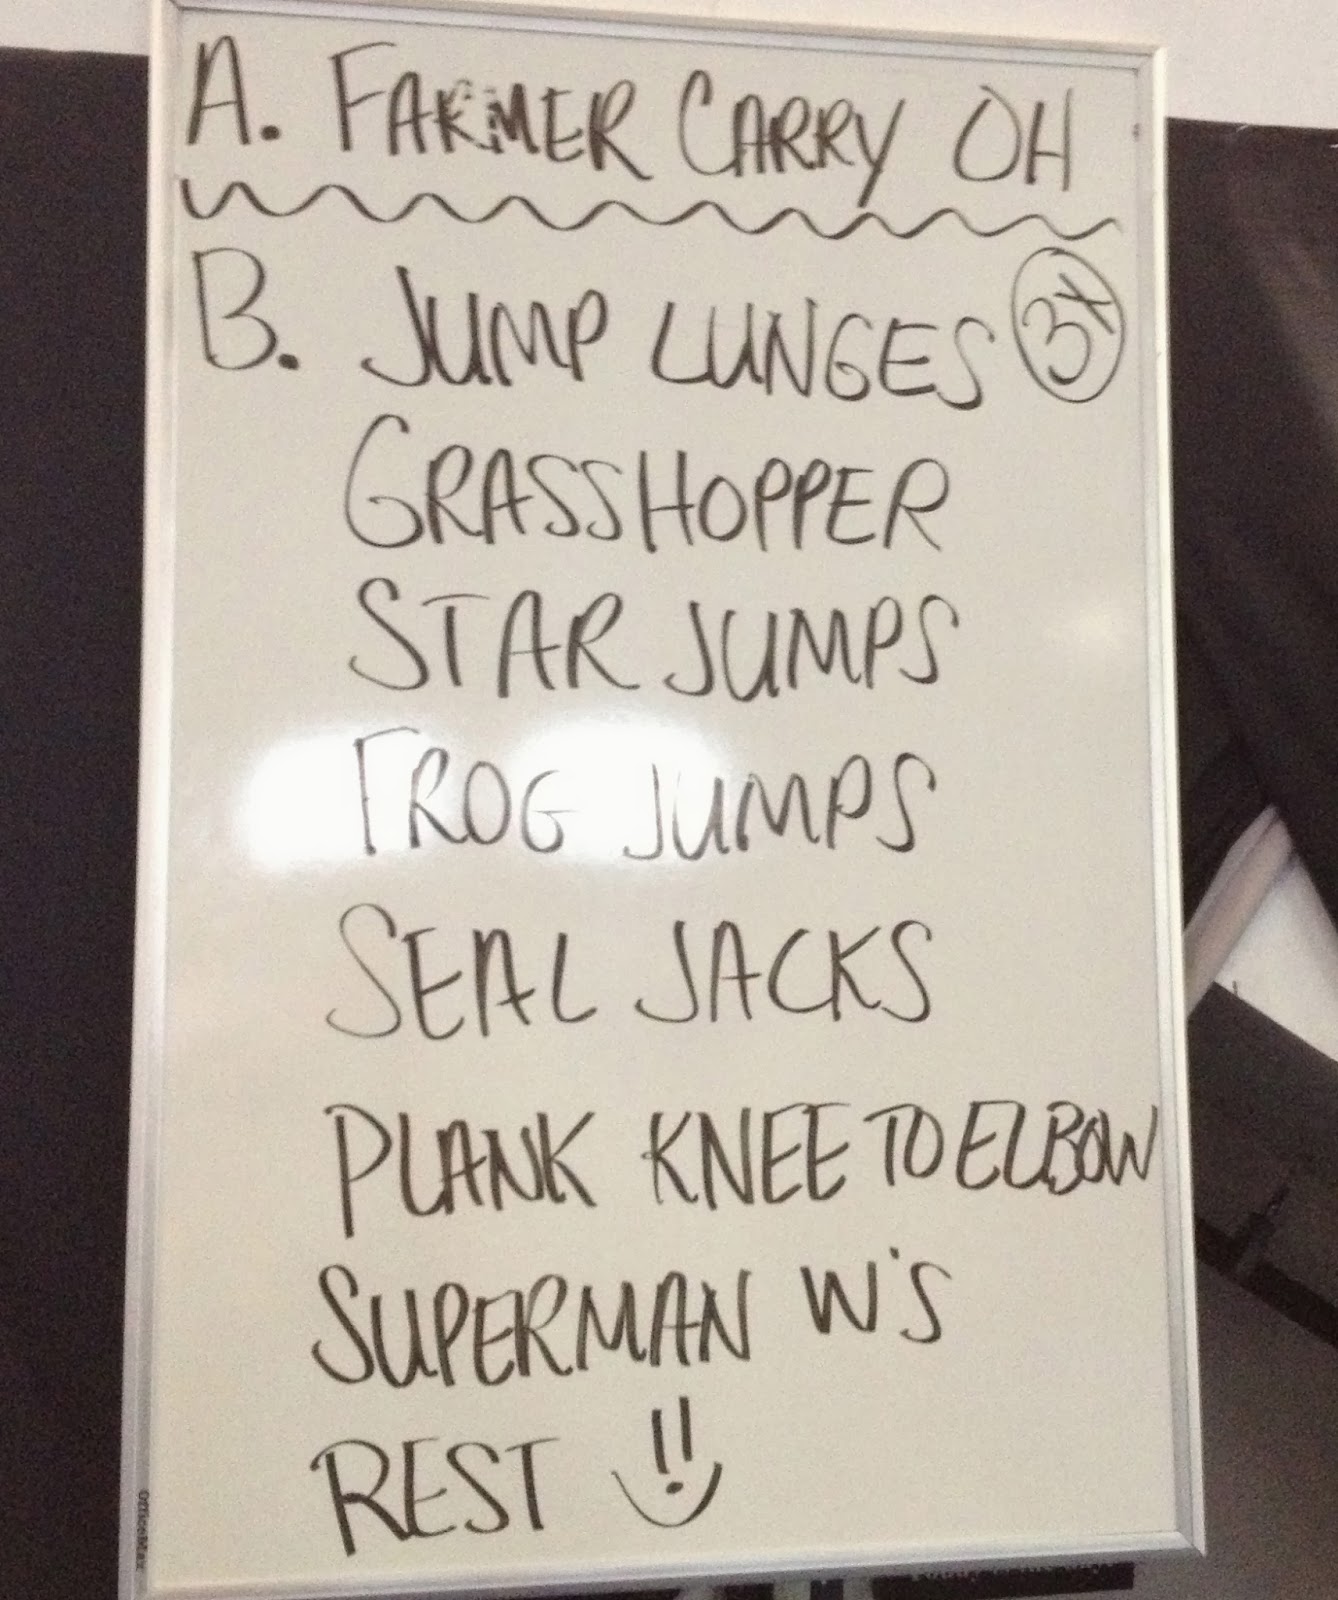 A. FARMER CARRY OH
B. JUMP LUNGES 3X
GRASSHOPPER
STAR JUMPS
FROG JUMPS
SEAL JACKS
PLANK KNEE TO ELBOW
SUPERMAN W'S
REST
OfficeMax